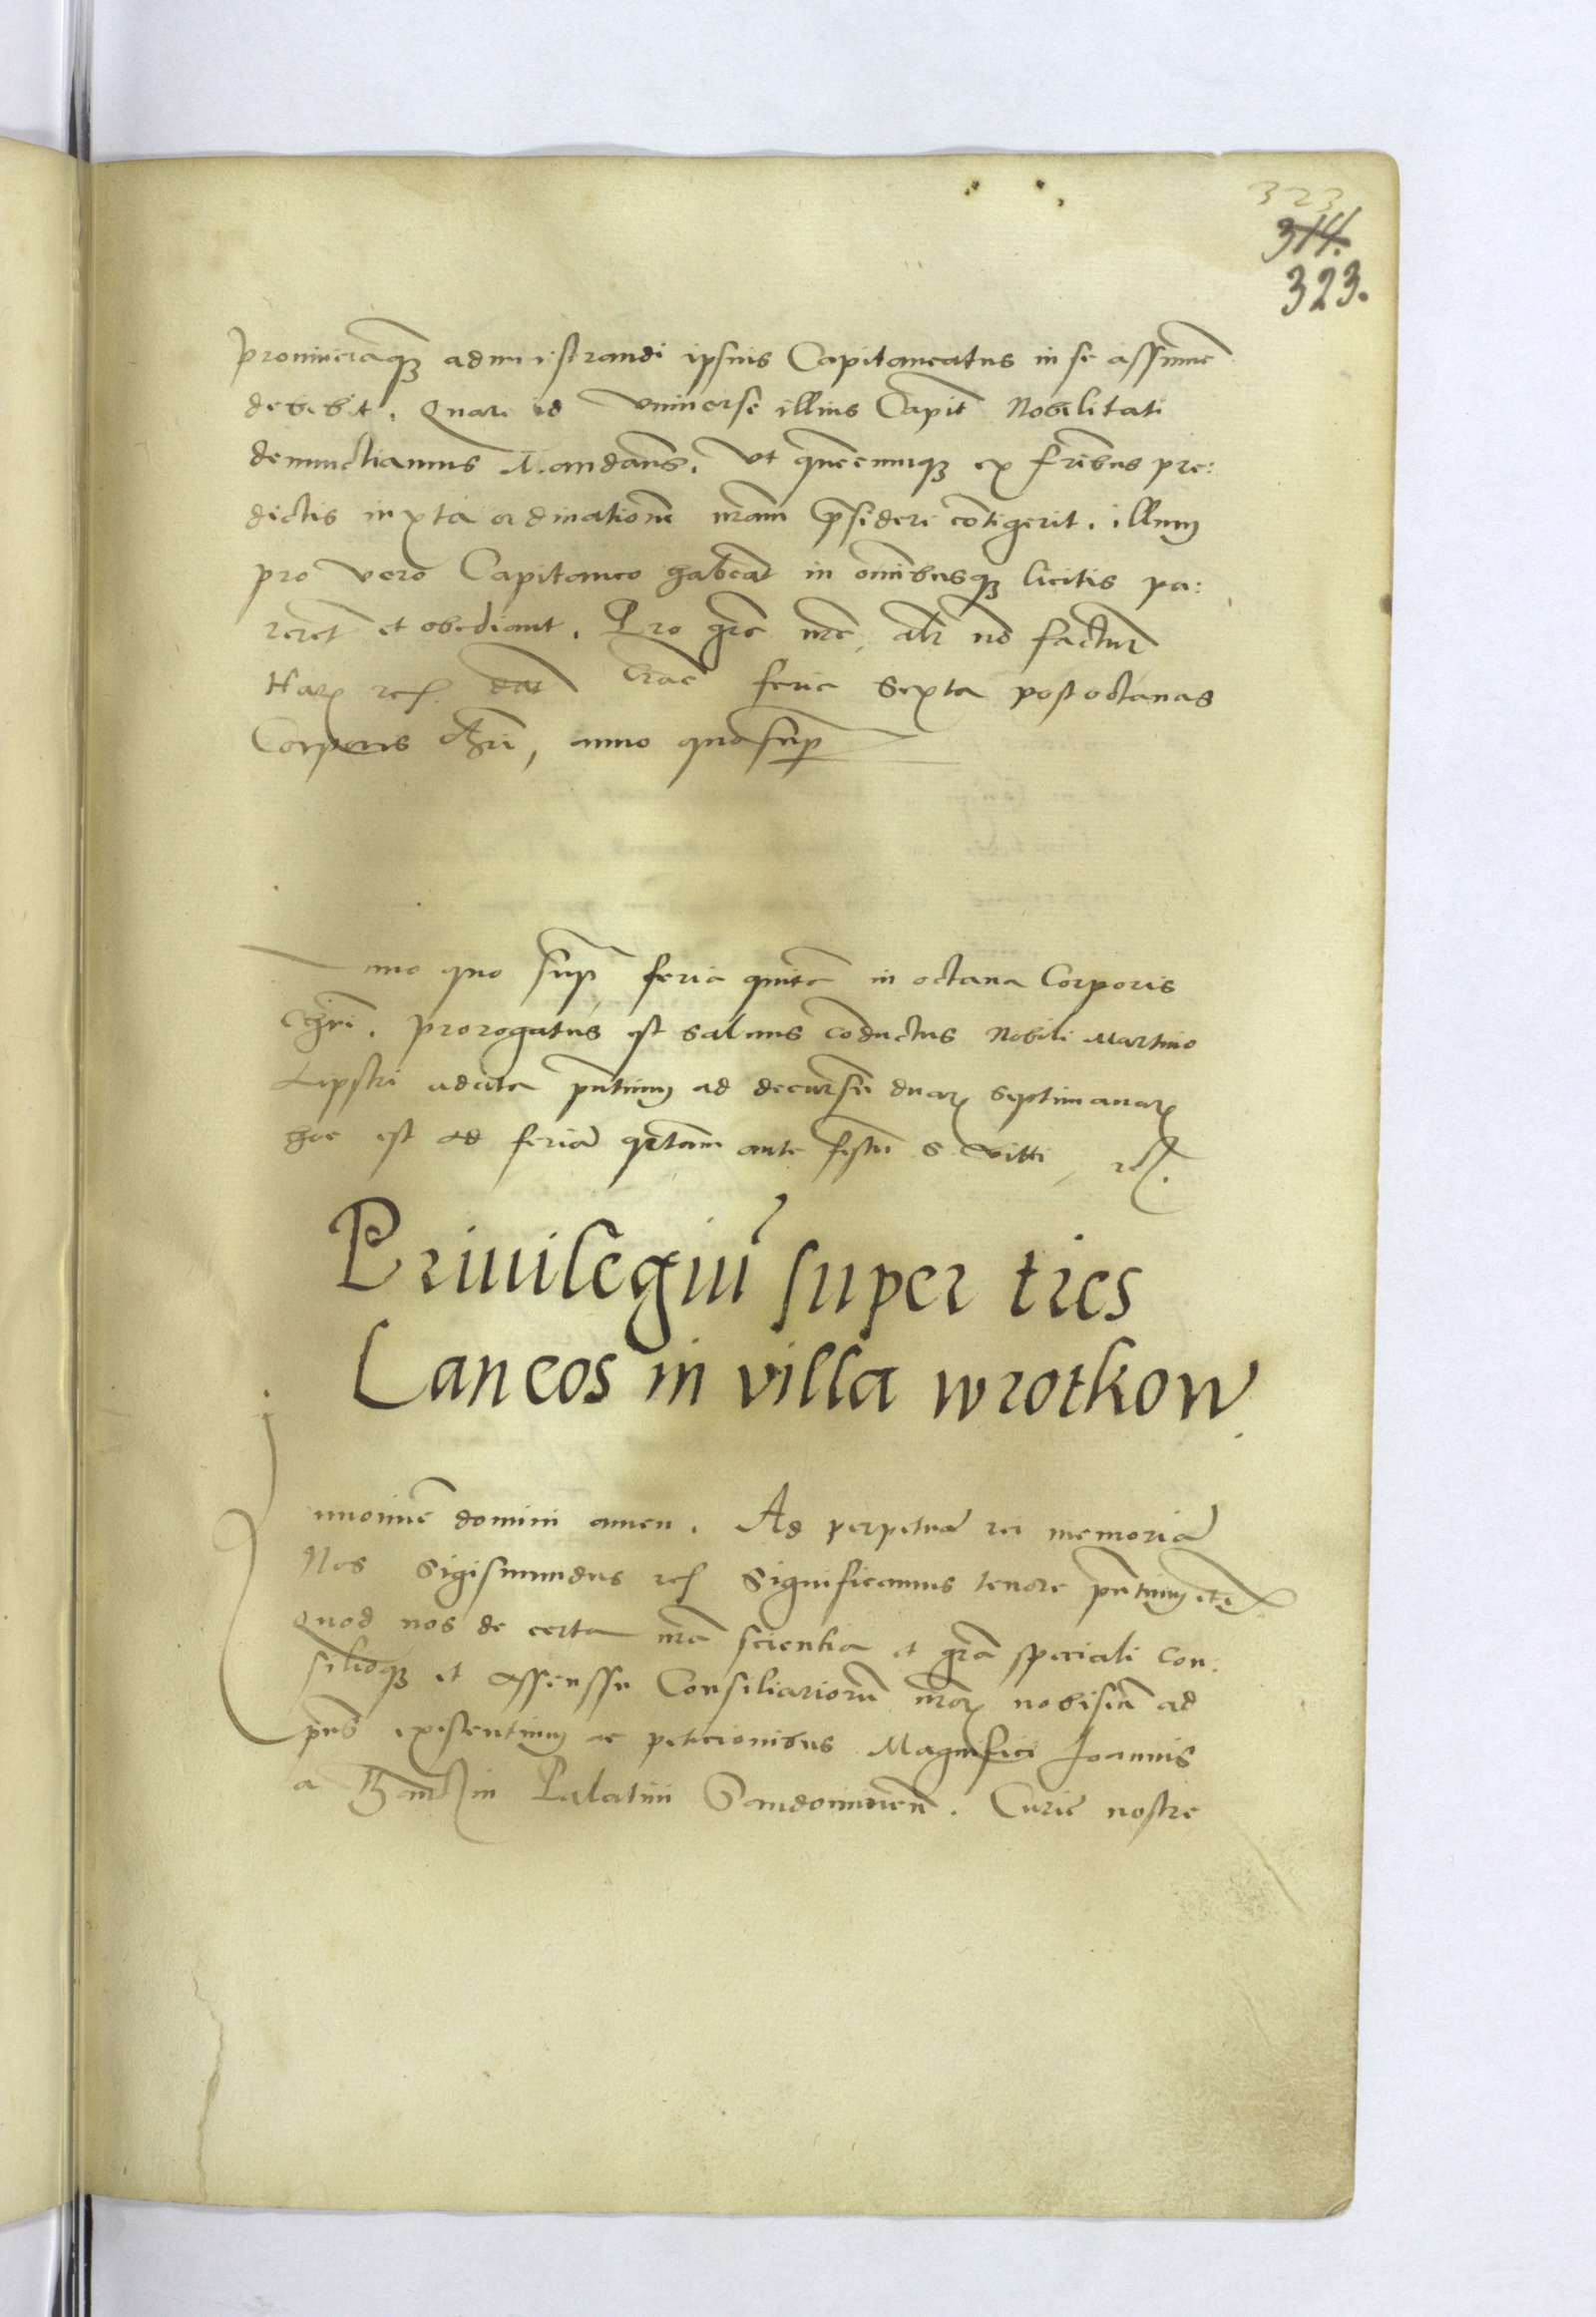 323
314.
323.
prouinciāqȝ administrandi ipsius Capitaneatus in se assumē
debebit. Quare id vniuerse illius Capit̄ Nobilitati
denunctiamus Mandan̄s. vt quēcumqȝ ex frībus pre:
dictis iuxta ordinationē nr̄am p̄sidere cōtigerit. illum
pro vero Capitaneo habeāt in om̄ibusqȝ licitis pa:
rerēt et obediant. Pro gr̄e nr̄e, alr̄ nō factur̄
Harȝ rcȝ dat̄ Crac̄ feria Sexta post octauas
Corporis Chrī, anno quo sup̄
nno quo sup̄ feria quīta in octaua Corporis
Chrī. prorogatus est saluus cōductus Nobili Martino
Lipski a data pn̄tium ad decursū duarȝ septimanarȝ
hoc est ad feriā qr̄tam ante festū S viti rcȝ.
Priuilegiū super tres
Laneos in villa wrotkow.
nnomine domini amen. Ad perpetuā rei memoriā
Nos Sigismundus rcȝ Significamus tenore pn̄tium etc̄
Quod nos de certa nr̄a scientia et gr̄a speciali con:
silioqȝ et assenssu Consiliariorū nr̄orȝ nobiscū ad
pn̄s existentium ac peticionibus Magnifici Joannis
a Palatini Sandomirien̄. Curie nostre